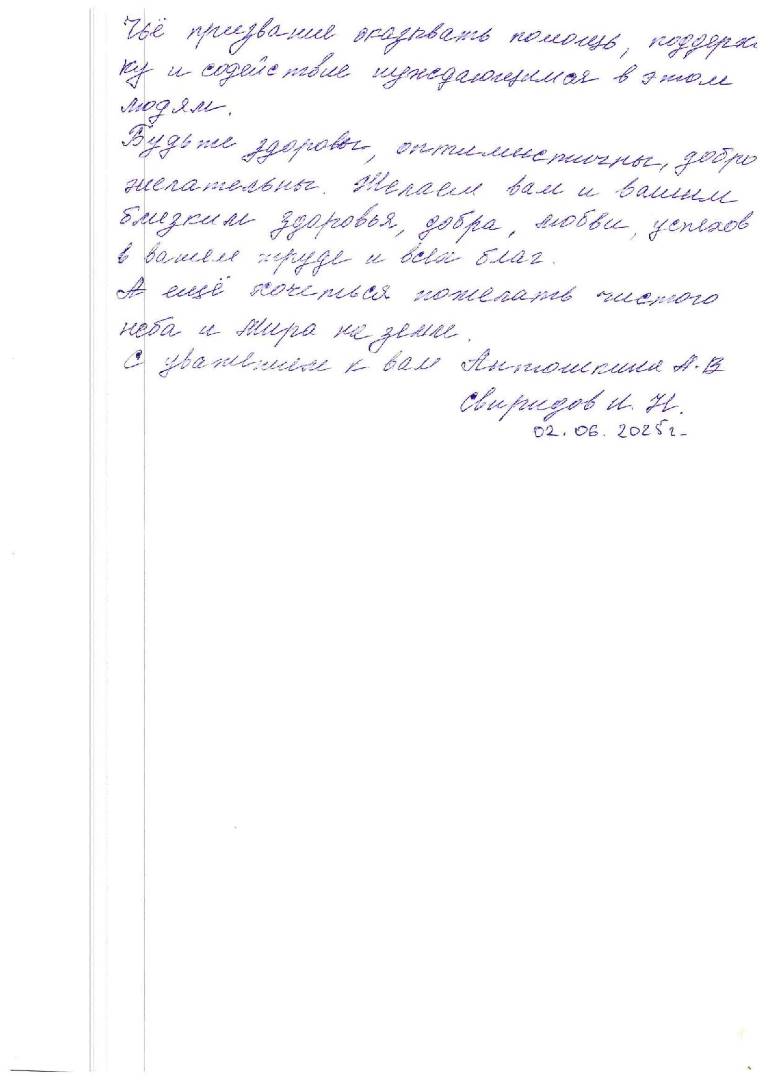 Чьё призвание оказывать помощь, поддерж
ку и содействие нуждающимся в этом
людям.
Будьте здоровы, оптимистичны, добро
желательны. Желаем вам и вашим
близким здоровья, добра, любви, успехов
в вашем труде и всех благ.
А ещё хочеться пожелать чистого
неба и Мира на земле.
С уважением к вам Антошкина А.В
Свиридов И. Н.
02.06.2025г.